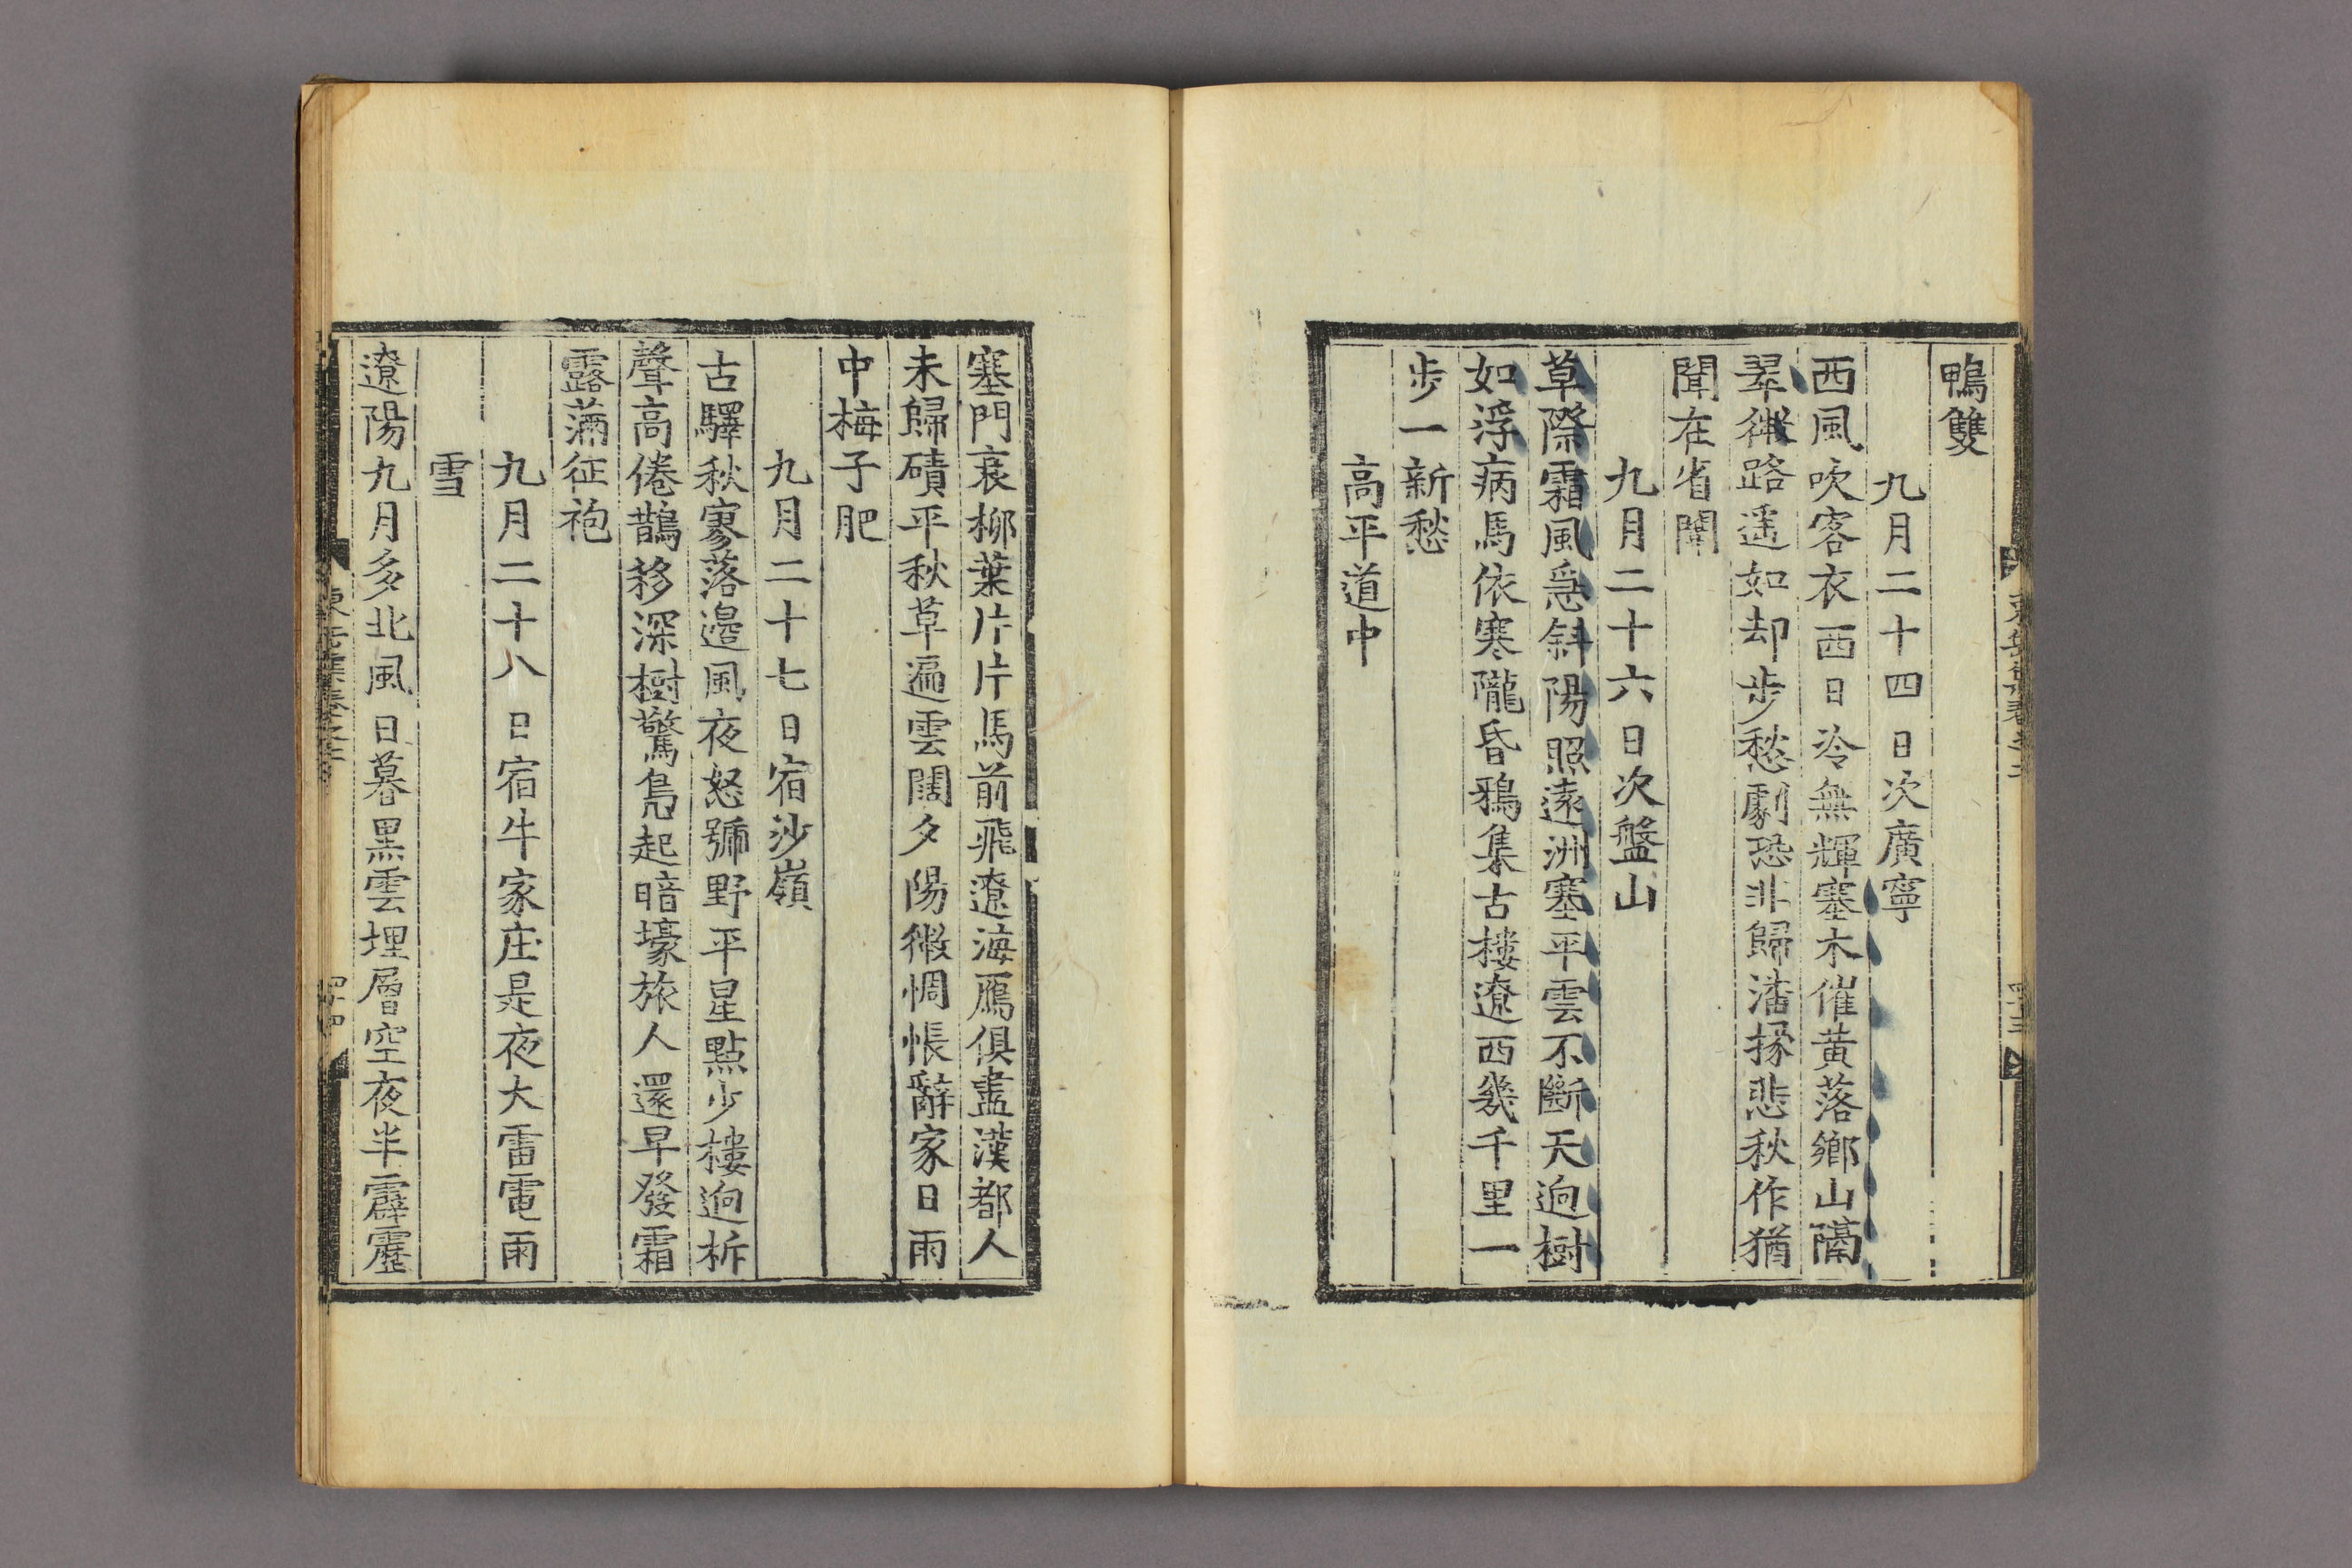 鴨雙
九月二十四日次廣寧
西風吹客衣西日冷無輝塞木催黃落鄉山隔
翠微路遥如却步愁劇恐非歸潘掾悲秋作猶
聞在省闈
九月二十六日次盤山
草際霜風急斜陽照遠洲塞平雲不斷天逈樹
如浮病馬依寒隴昏鴉集古樓遼西幾千里一
步一新愁
高平道中
塞門衰柳葉片片馬前飛遼海鴈俱盡漢都人
未歸磧平秋草遍雲闊夕陽微惆悵辭家日雨
中梅子肥
九月二十七日宿沙嶺
古驛秋寥落邊風夜怒號野平星點少樓逈柝
聲高倦鵲移深樹驚鳧起暗壕旅人還早發霜
露滿征袍
九月二十八日宿牛家庄是夜大雷電雨
雪
遼陽九月多北風日暮黑雲埋層空夜半霹靂